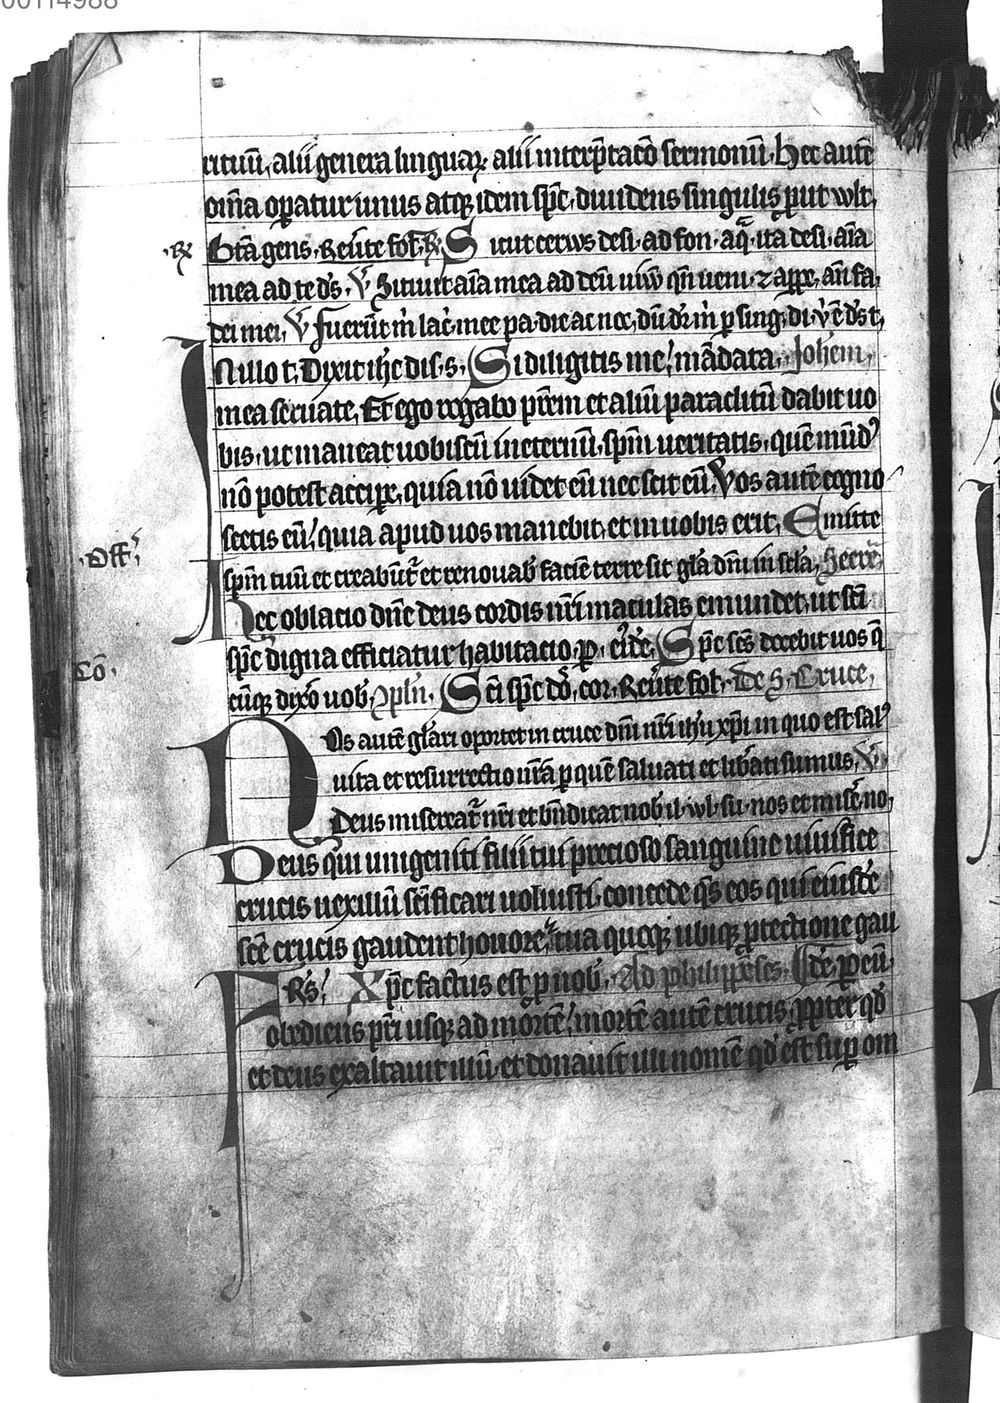 00114988
rituū, alii genera linguaꝝ alii interp̄tacō sermonū. Hec autē
om̄ia oꝑatur unus atqꝫ idem sp̄c, diuidens singulis ꝓut wlt,
℞ Bt̄a gens. Reūte fol. Sicut cerws desi. ad fon. aq̄. ita desi. aīa
mea ad te ds̄. ℣ Sitiuit aīa mea ad deū uiw̄ qn̄ ueni ⁊ appe, an̄ fa.
dei mei, ℣ fuerūt m̄ lac̄. mee pa. die ac noc, dū dr̄ m̄ ꝑ sing. di. v̄ ē ds̄ t,
In illo t. Dixit ih̄c dis. s. Si diligitis me, mādata Johem,
mea seruate, Et ego rogabo pr̄em et aliū paraclitū dabit uo
bis, ut maneat uobiscū in eternū, sp̄m ueritatis, quē mūd᾽
nō potest accipe, quia nō uidet eū nec scit eū, Vos autē cogno
scetis eū, quia apud uos manebit, et in uobis erit, Emitte
Off᾽ sp̄m tuū et creabūt᷑ et renouab᾽ faciē terre sit gl̄a dn̄i in sc̄la, Secre᷑
Hec oblacio dn̄e deus cordis nr̄i maculas emundet, ut sc̄i
sp̄c digna efficiatur habitacio, ꝑ. ei᾽de, Sp̄c sc̄s docebit uos q̄
Cō. cūqꝫ dixo uob᾽, 9pln̄. Sc̄i sp̄c dō, cor, Reūte fol. De S. Cruce,
Nos autē gl̄ari oportet in cruce dn̄i nr̄i ih̄u xp̄i in quo est sal᾽
uita et resurrectio nr̄a ꝑ quē saluati et lib̄ati sumus, ℣
Deus misereat᷑ nr̄i et bn̄dicat nob᾽ il. wl. su. nos et misē. no,
Deus qui unigeniti filii tui precioso sanguine uiuifice
crucis uexillū sc̄ificari uoluisti, concede qs̄ eos qui eiusdē
sc̄e crucis gaudent honore, tua quoqꝫ ubiqꝫ ꝓtectione gau
Frs᾽ Xp̄c factus est ꝓ nob᾽, Ad philippēses, de. ꝑ eū.
obediens pr̄i usqꝫ ad mortē, mortē autē crucis, ꝓpter qd᾽
et deus exaltauit illū, et donauit illi nomē qd᾽ est suꝑ om